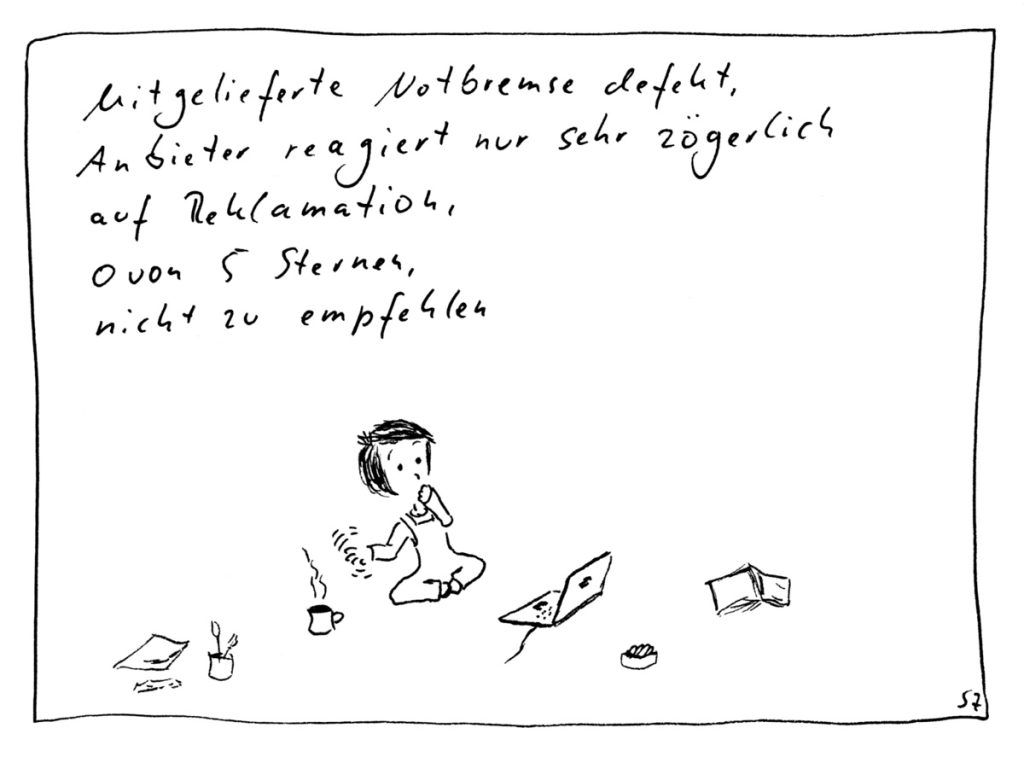 Mitgelieferte Notbremse defekt,
Anbieter reagiert nur sehr zögerlich
auf Reklamation,
0 von 5 Sternen,
nicht zu empfehlen
SZ